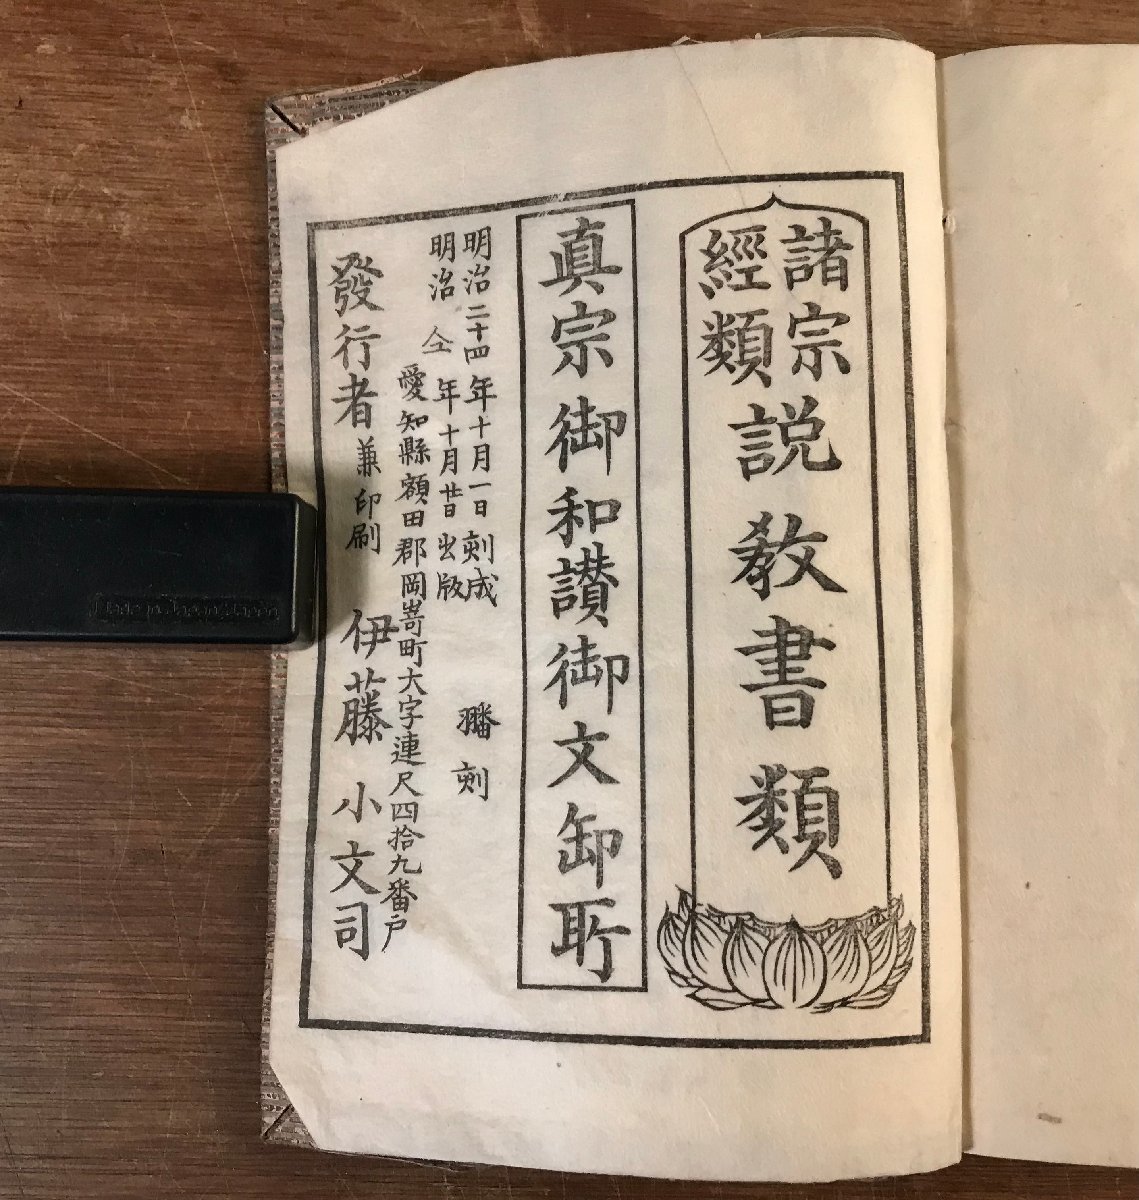 諸宗
經類
説教書類
真宗御和讃御文卸所
明治二十四年十月一日刻成
飜刻
明治仝年十月廿日出版
愛知縣額田郡岡嵜町大字連尺四拾九番戸
發行者兼印刷
伊藤小文司